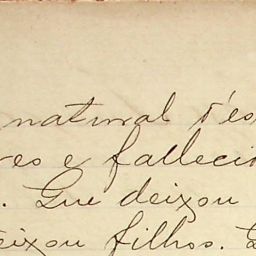 natural d'es
res e falleci
. Que deixou
eixou filhos. G